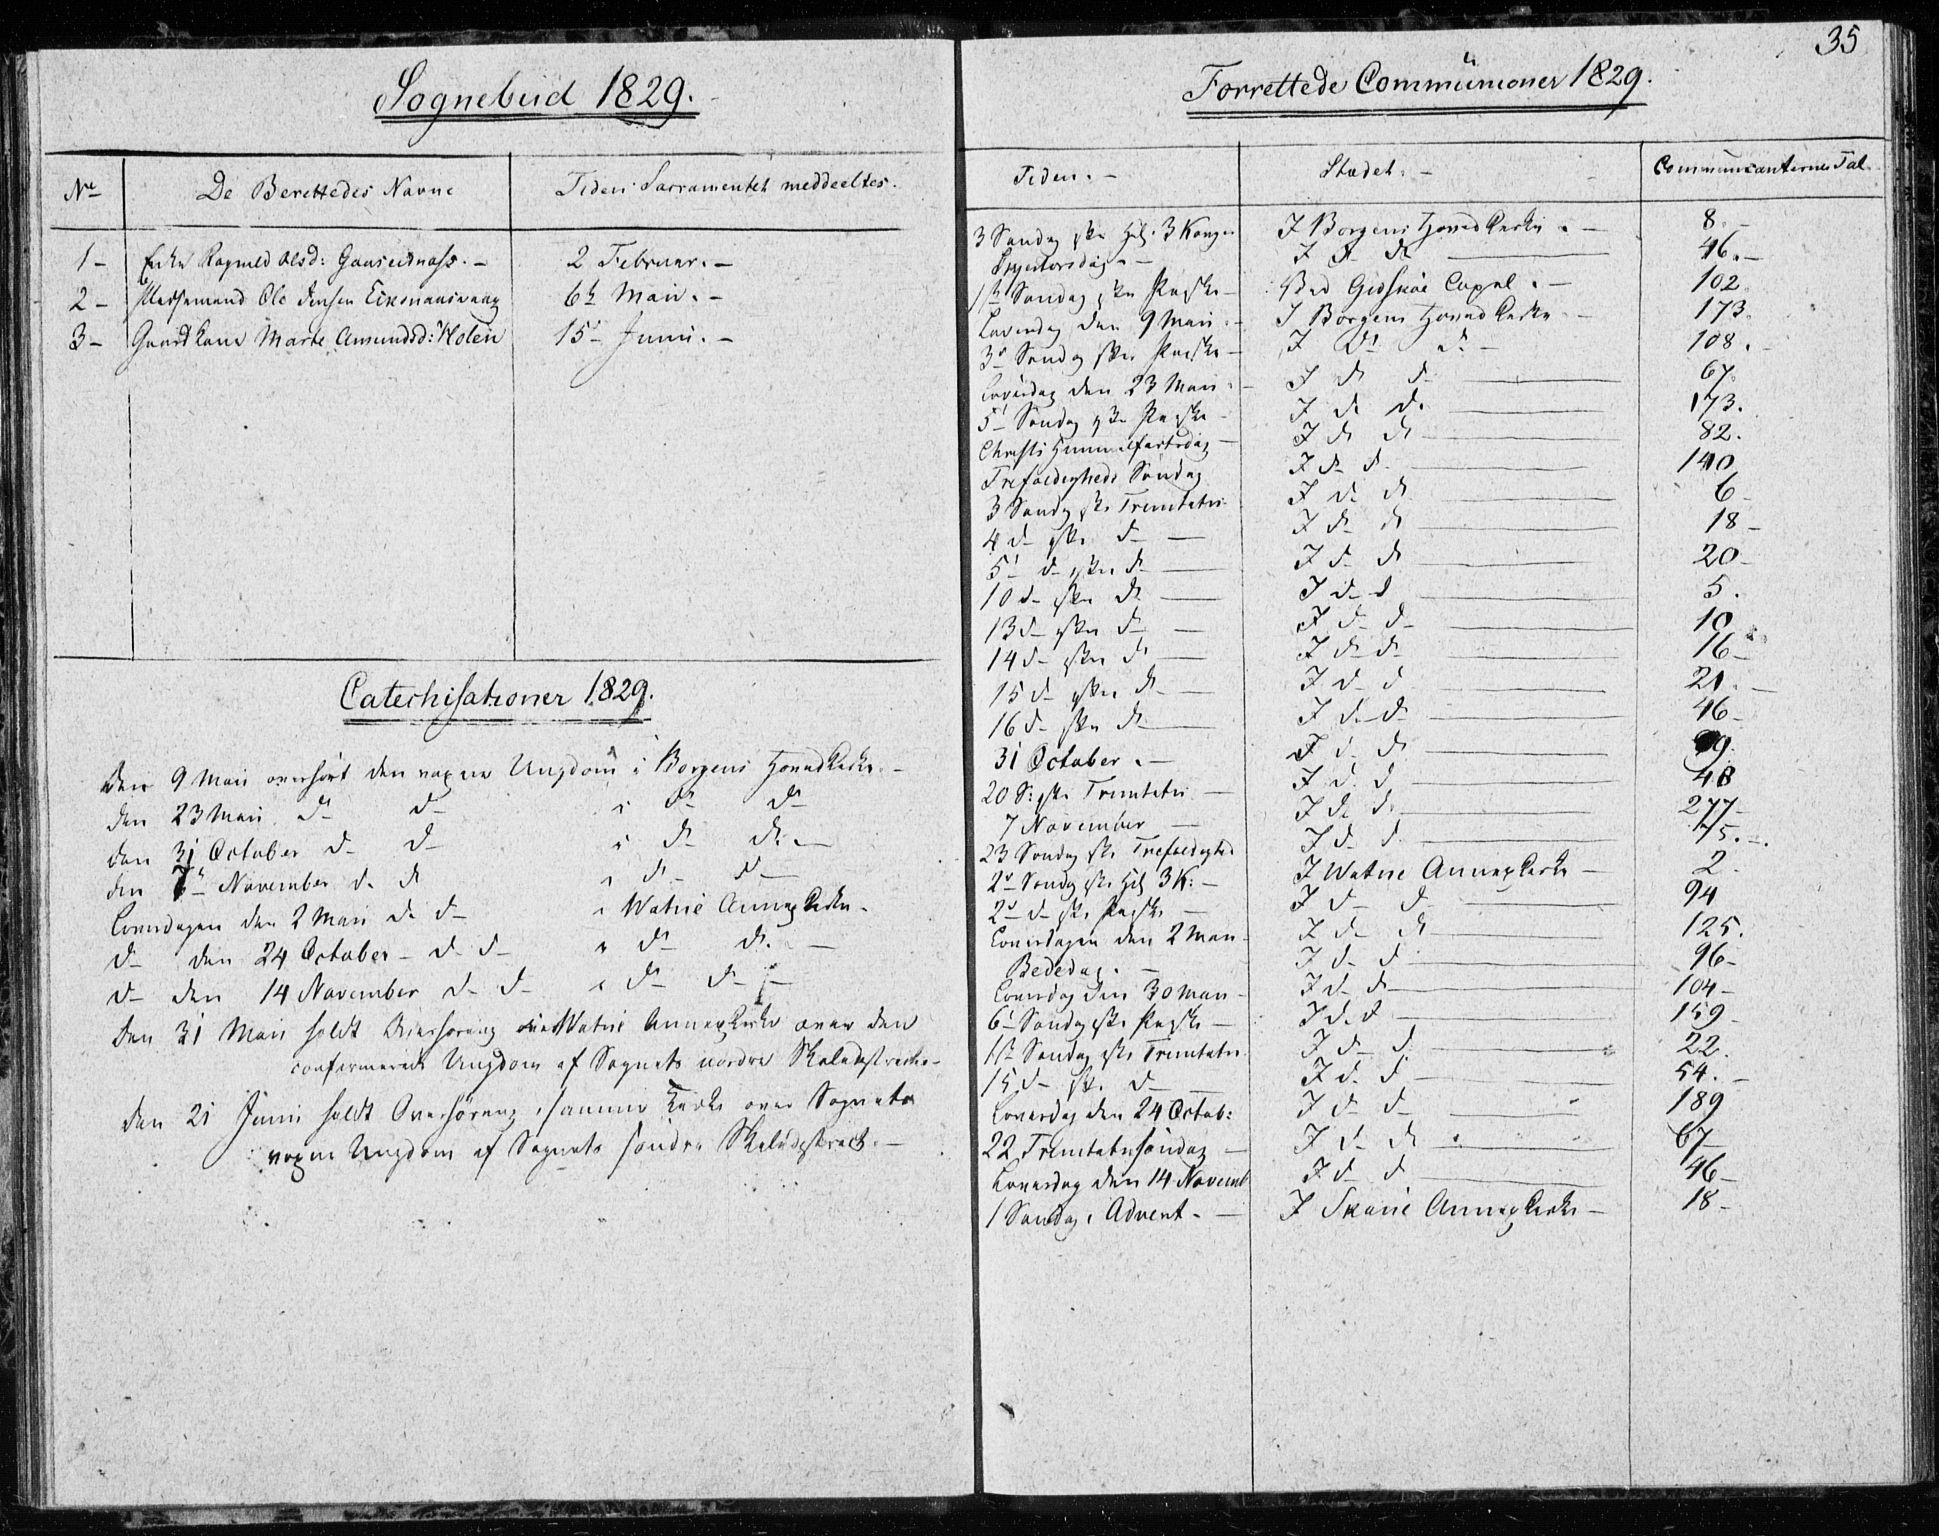 Sognebud 1829.
No De Berettedes Navne Tiden Sacramentet meddeeltes.
1 - Enke Ragnild Olsd: - 2 Februar. -
2 - Ole Jensen 6te Maii. -
3 - Gaardkone Marte Amundsd: Holen 15de Junii. -
Catechisationer 1829.
Den 9 Maii overhørt den voxne Ungdom i Borgens HovedKirke. -
Den 23 Maii do do i do do
Den 31 October do do i do do. -
Den 7de November do do i do do -
Loverdagen den 2 Maii do do i Watne AnnexKirke.
do den 24 October - do do i do do. -
do den 14 November do do i do do -
Den 31 Maii holdt Overhøring Watne AnnexKirke over den
confirmerede Ungdom af Sognets nordre
Den 21 Junii holdt Overhøring i samme Kirke over Sognets
voxne Ungdom af Sognets søndre
35
Forrettede Communioner 1829.
Tiden. - Stædet. - Communicanternes Tal.
3 Søndag efter Hel: 3 Konger I Borgens HovedKirke. - 8. -
I do do 46. -
1ste Søndag efter Paaske - Ved Gidskøe Capel. - 102.
Løverdag den 9 Maii. - I Borgens HovedKirke - 173.
3de Søndag efter Paaske - I do do. - 108. -
Løverdag den 23 Maii. - I do do 67.
5te Søndag efter Paaske - I do do. 173.
Christi Himmelfartsdag - I do do 82.
Trefoldigheds Søndag I do do. 140
3 Søndag efter Trinitatis I do do 6 -
4 do efter do - I do do 18 -
5te do efter do I do do 20 -
10 do efter do I do do 5.
13 do efter do I do do 10
14 do efter do I do do 16 -
15 do efter do I do do 21. -
16 do efter do I do do 46 -
31 October. - I do do 99.
20 S: efter Trinitatis - I do do 48
7 November - I do do 277 -
23 Søndag efter Trefoldighed I do do 75. -
2de Søndag efter Hel: 3 K: - I Watne AnnexKirke - 2.
2de do efter Paaske - I do do 94
Loverdagen den 2 Maii - I do do 125.
Bededag. - I do do 96 -
Loverdag den 30 Maii - I do do 104 -
6te Søndag efter Paaske - I do do 159 -
1ste Søndag efter Trinitatis I do do 22.
15 do efter do - I do do 54. -
Loverdag den 24 Octob: I do do 189
22 Trinitatissøndag - I do do 67 -
Loverdag den 14 Novemb I do do 46 -
1 Søndag i Advent. - I Skorie AnnexKirke - 18 -